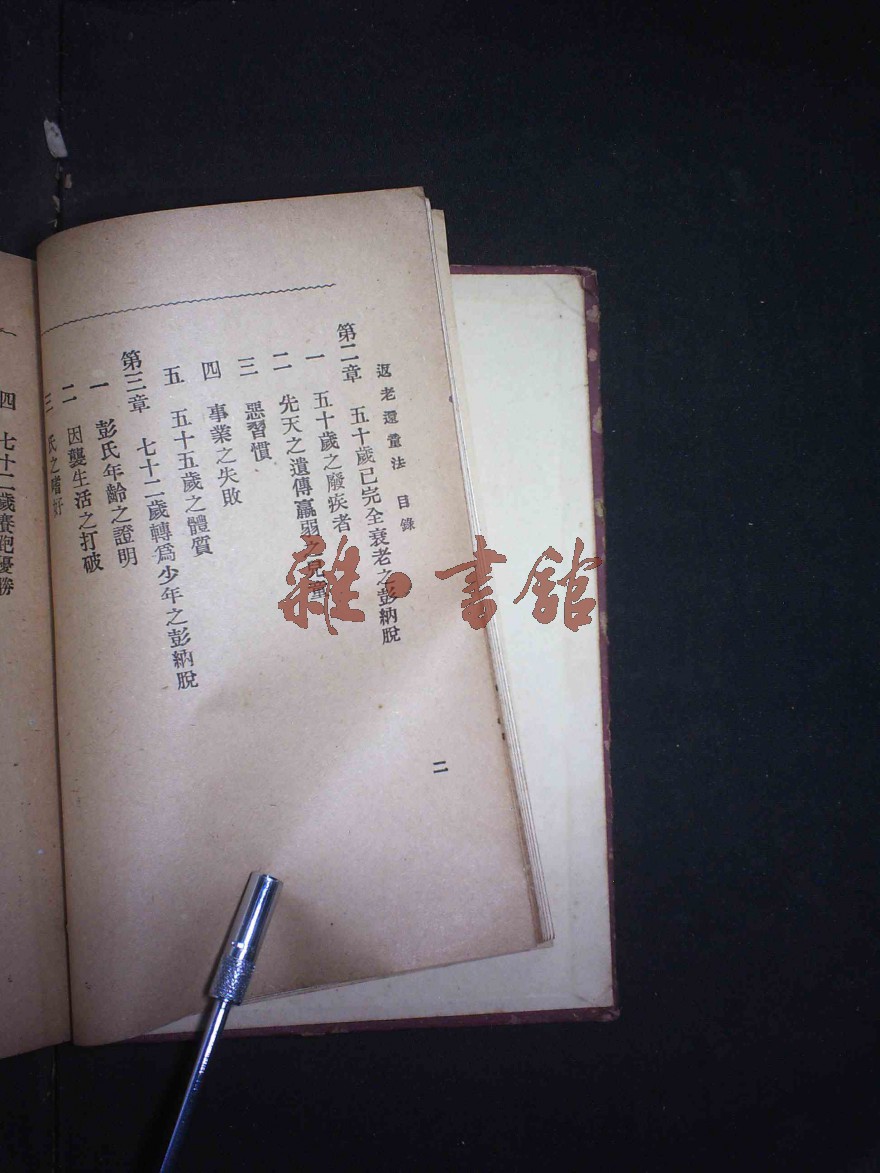 返老還童法 目錄
第二章 五十歲已完全衰老之彭納脫
一 五十歲之廢疾者
二 先天之遺傳羸弱之兒童
三 惡習慣
四 事業之失敗
五 五十五歲之體質
第三章 七十二歲轉爲少年之彭納脫
一 彭氏年齡之證明
二 因襲生活之打破
三 氏之嗜好
二
四 七十二歲賽跑優勝
雜·書館